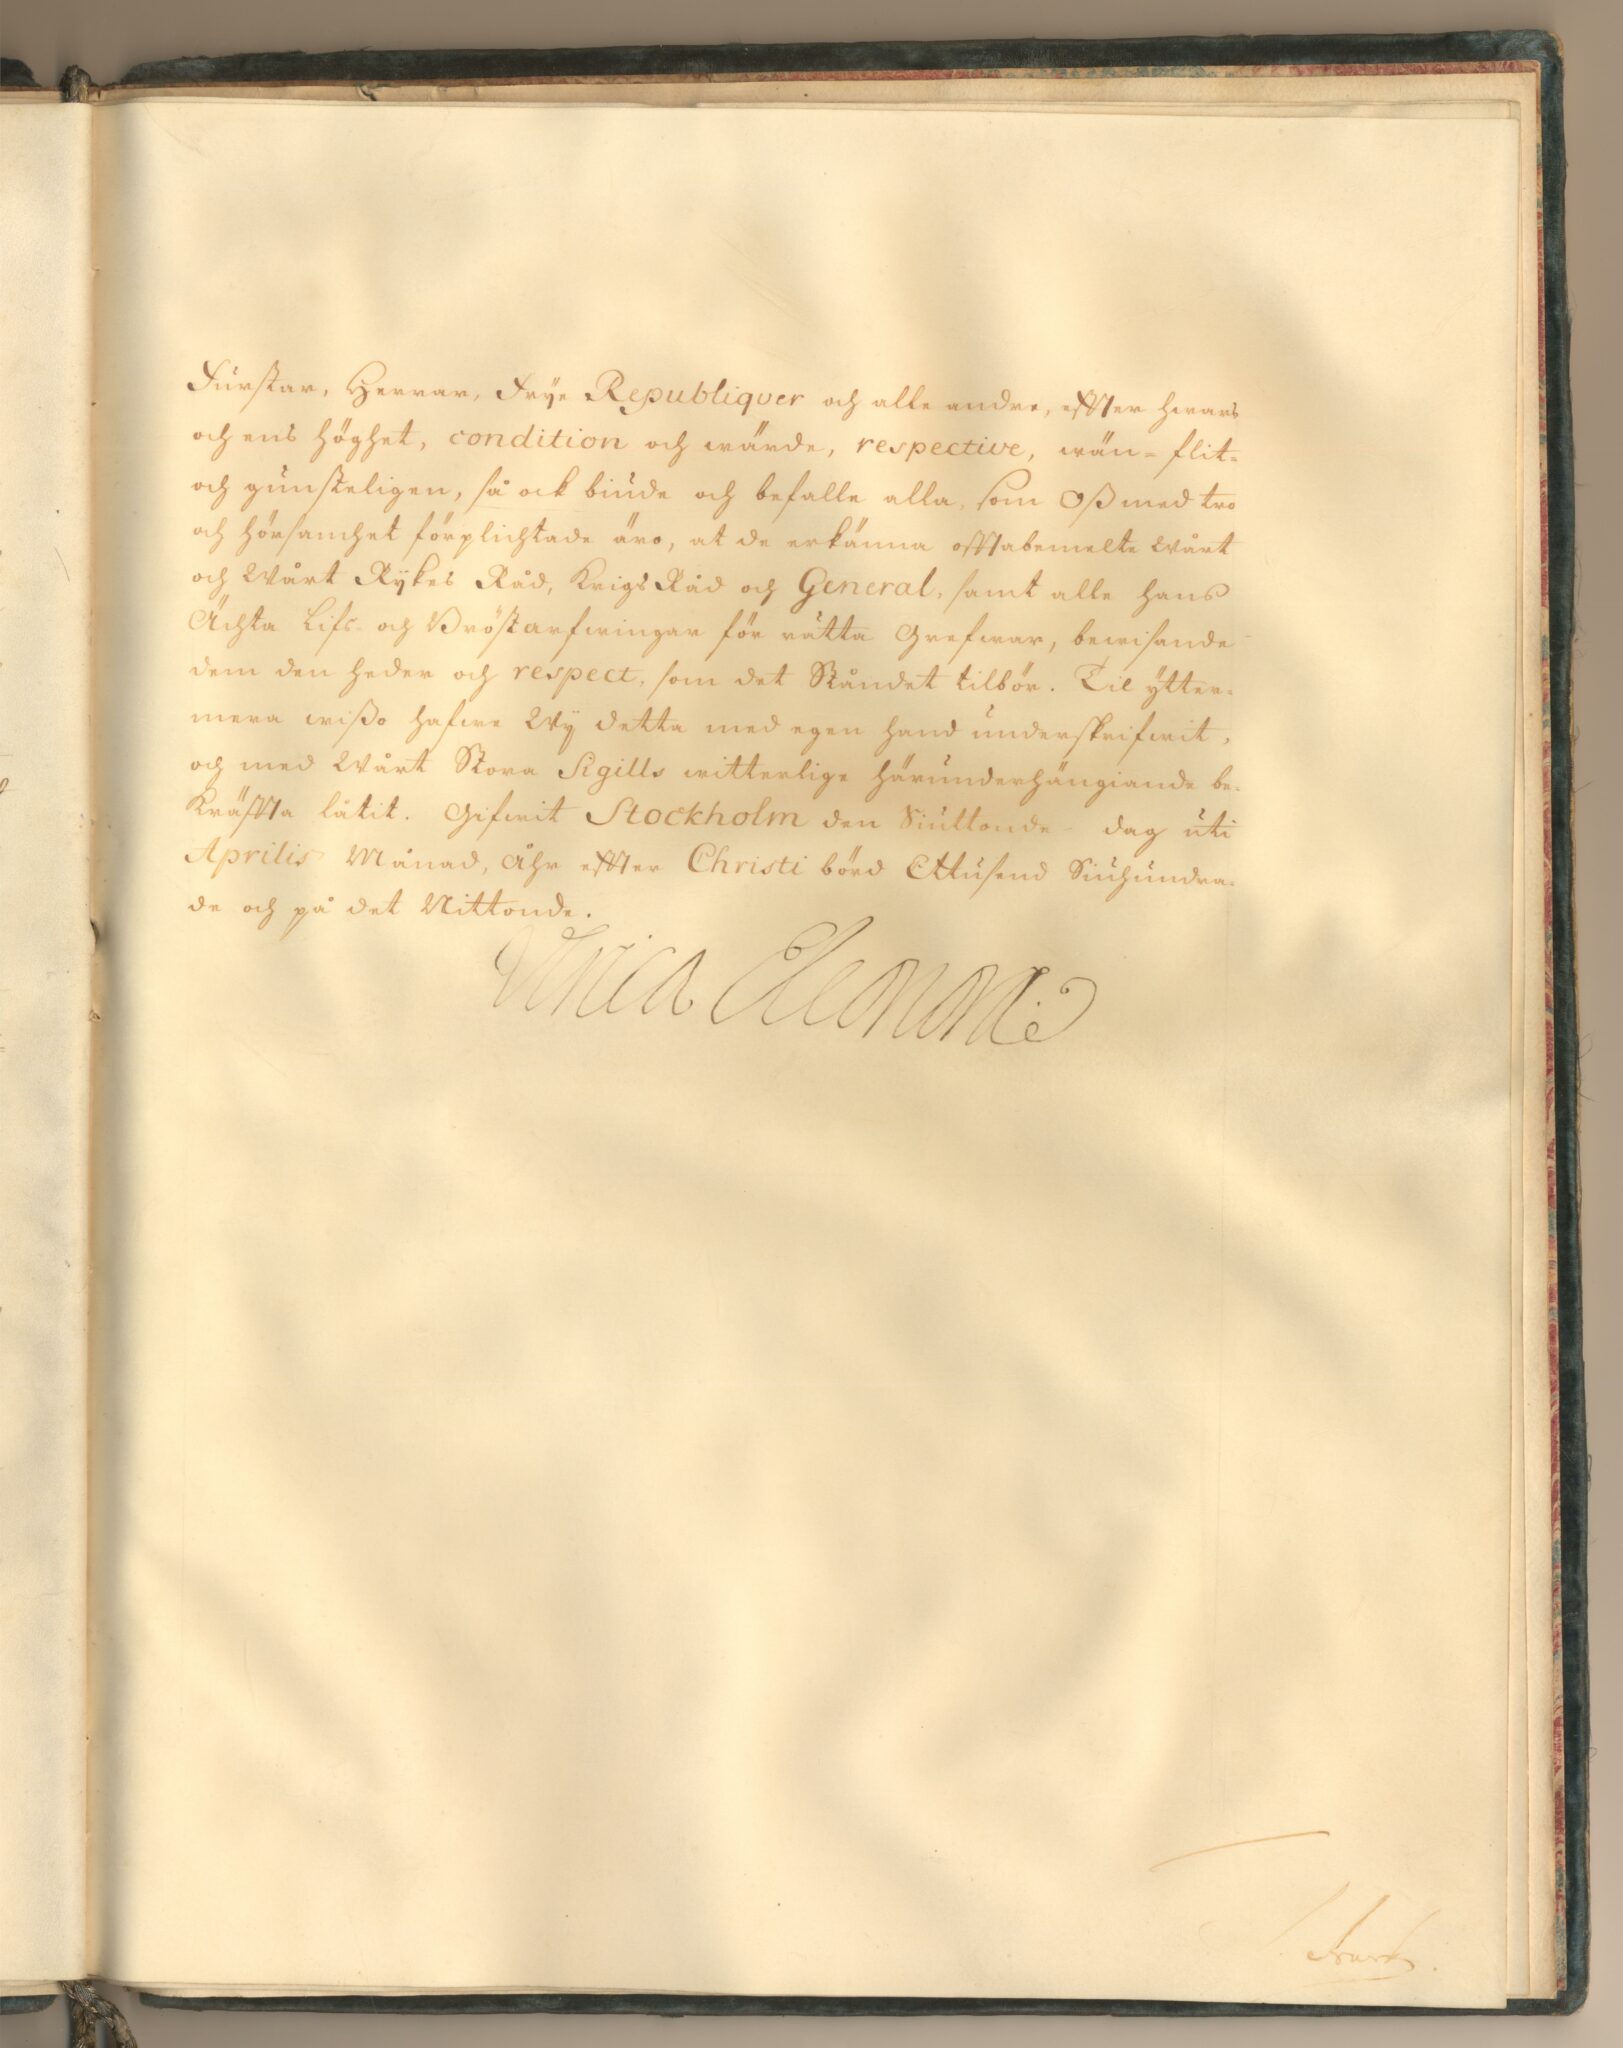 Fürstar, Herrar, Frye Republiquer och alle andre, effter hwars
och ens höghet, condition och wärde, respective, wän= flit=
och gunsteligen, så ock biude och befalle alla, som Oß med tro
och hörsamhet förplichtade äro, at de erkänna offtabemelte Wårt
och Wårt Rykes Råd, Krigs Råd och General, samt alle hans
Ächta Lifs- och Bröstarfwingar för rätta Grefwar, bewisande
dem den heder och respect, som det Ståndet tilbör. Til ytter=
mera wißo hafwe Wy detta med egen hand underskrifwit,
och med Wårt Stora Sigills witterlige härunderhängiande be=
kräffta låtit. Gifwit Stockholm den Siuttonde dag uti
Aprilis Månad, Åhr effter Christi börd Ettusend Siuhundra=
de och på det Nittonde.
Ulrica Eleonora